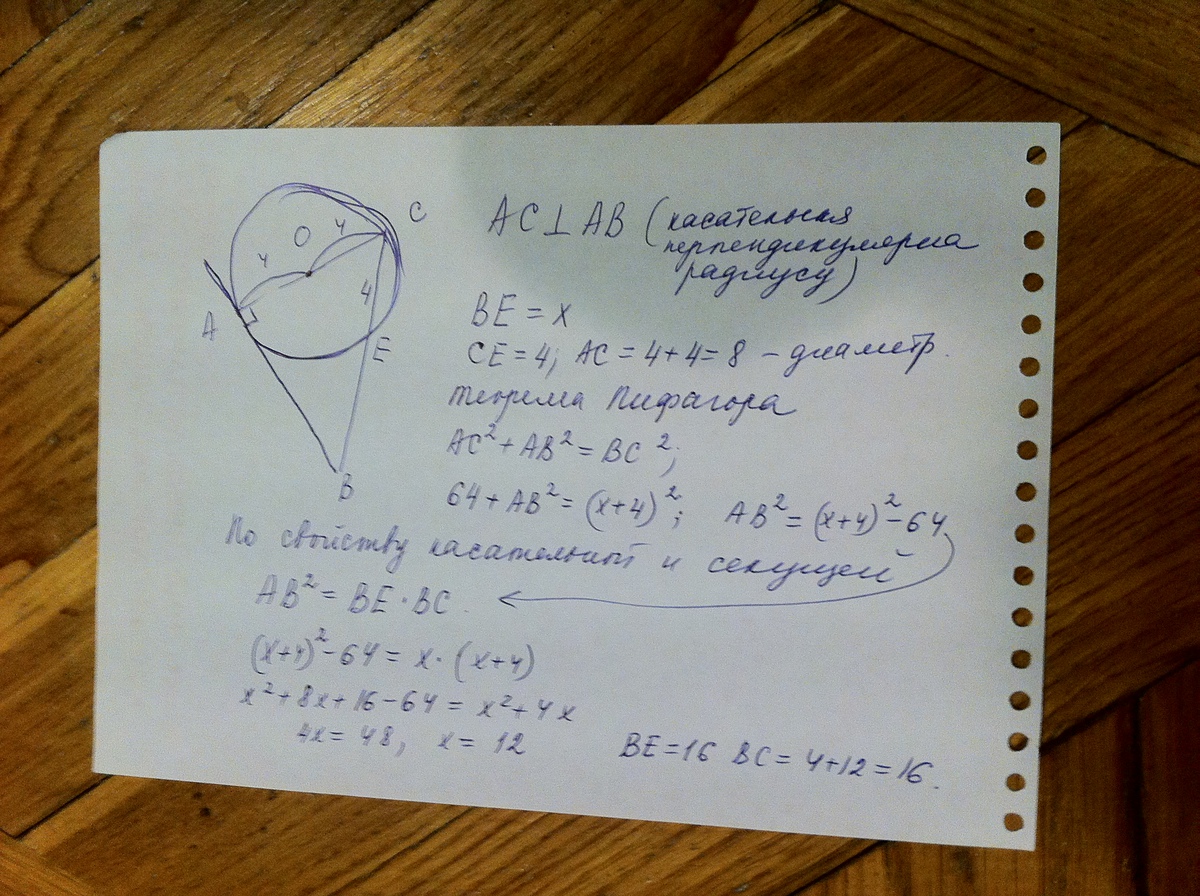 C
O
4
4
4
A
E
B
AC⊥AB (касательная
перпендикулярна
радиусу)
BE = x
CE = 4; AC = 4+4 = 8 – диаметр.
теорема Пифагора
AC² + AB² = BC²;
64 + AB² = (x+4)²; AB² = (x+4)² - 64
По свойству касательной и секущей
AB² = BE · BC.
(x+4)² - 64 = x · (x+4)
x² + 8x + 16 - 64 = x² + 4x
4x = 48, x = 12
BE = 16 BC = 4+12 = 16.